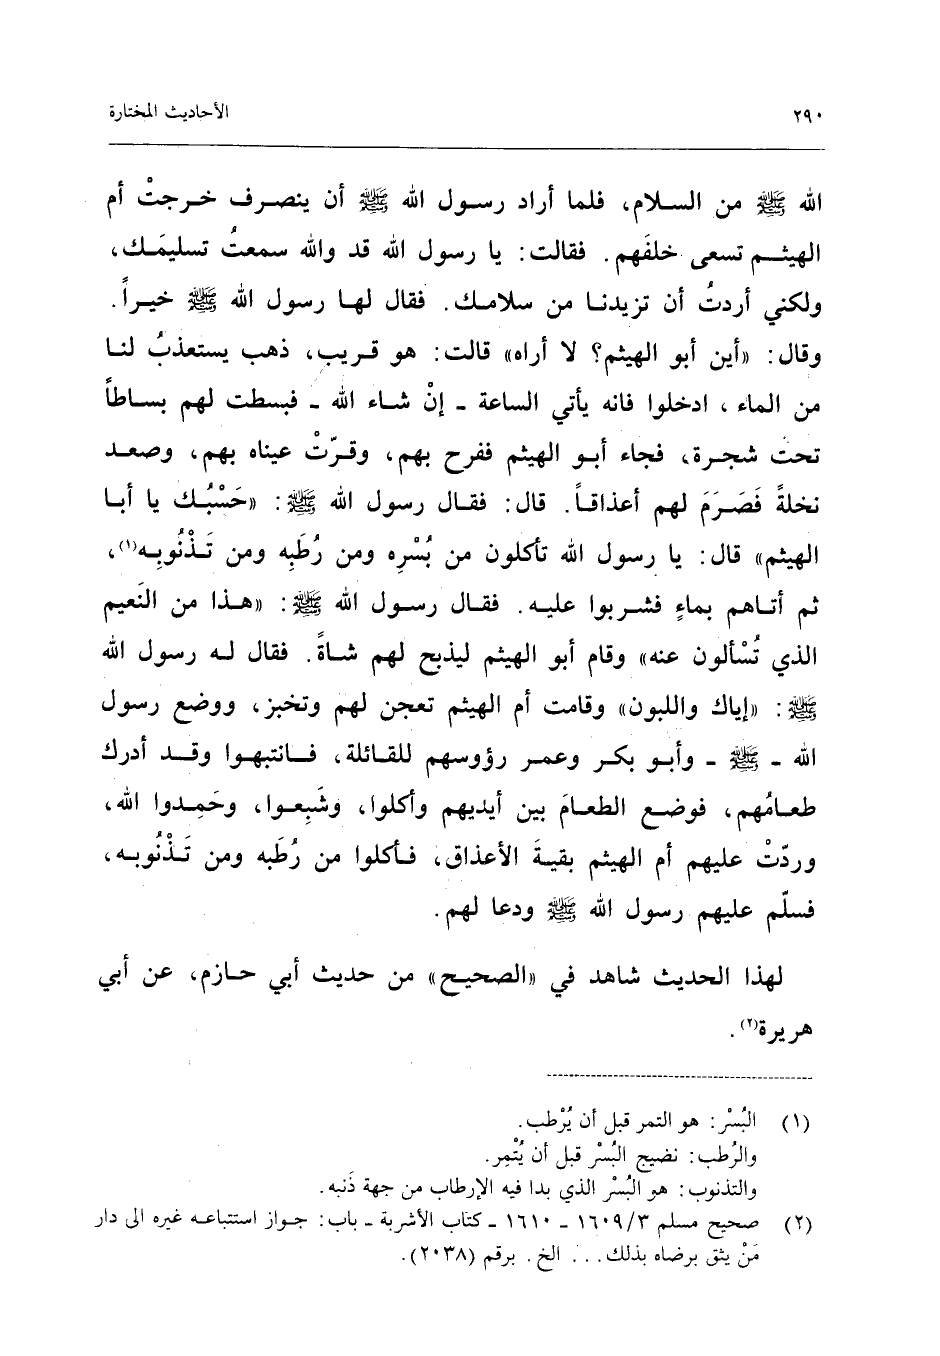 ٢٩٠ الأحاديث المختارة
الله ﷺ من السلام، فلما أراد رسول الله ﷺ أن ينصرف خرجتْ أم
الهيثم تسعى خلفَهم. فقالت: يا رسول الله قد والله سمعتُ تسليمَك،
ولكني أردتُ أن تزيدنا من سلامك. فقال لها رسول الله ﷺ خيراً.
وقال: «أين أبو الهيثم؟ لا أراه» قالت: هو قريب، ذهب يستعذبُ لنا
من الماء، ادخلوا فانه يأتي الساعة ـ إنْ شاء الله ـ فبسطت لهم بساطاً
تحت شجرة، فجاء أبو الهيثم ففرح بهم، وقرّتْ عيناه بهم، وصعد
نخلةً فَصَرَمَ لهم أعذاقاً. قال: فقال رسول الله ﷺ: «حَسْبُك يا أبا
الهيثم» قال: يا رسول الله تأكلون من بُسْرِه ومن رُطَبِه ومن تَذْنُوبِه(١)،
ثم أتاهم بماءٍ فشربوا عليه. فقال رسول الله ﷺ: «هذا من النَعيم
الذي تُسْألون عنه» وقام أبو الهيثم ليذبح لهم شاةً. فقال له رسول الله
ﷺ: «إياك واللبون» وقامت أم الهيثم تعجن لهم وتخبز، ووضع رسول
الله ـ ﷺ ـ وأبو بكر وعمر رؤوسهم للقائلة، فانتبهوا وقد أدرك
طعامُهم، فوضع الطعامَ بين أيديهم وأكلوا، وشَبِعوا، وحَمِدوا الله،
وردّتْ عليهم أم الهيثم بقيةَ الأعذاق، فأكلوا من رُطَبه ومن تَذْنُوبه،
فسلّم عليهم رسول الله ﷺ ودعا لهم.
لهذا الحديث شاهد في «الصحيح» من حديث أبي حازم، عن أبي
هريرة(٢).
(١) البُسْر: هو التمر قبل أن يُرْطب.
والرُطب: نضيج البُسْر قبل أن يُتْمِر.
والتذنوب: هو البُسْر الذي بدا فيه الإرطاب من جهة ذَنبه.
(٢) صحيح مسلم ١٦٠٩/٣ ـ ١٦١٠ ـ كتاب الأشربة ـ باب: جواز استتباعه غيره الى دار
مَنْ يثق برضاه بذلك... الخ. برقم (٢٠٣٨).